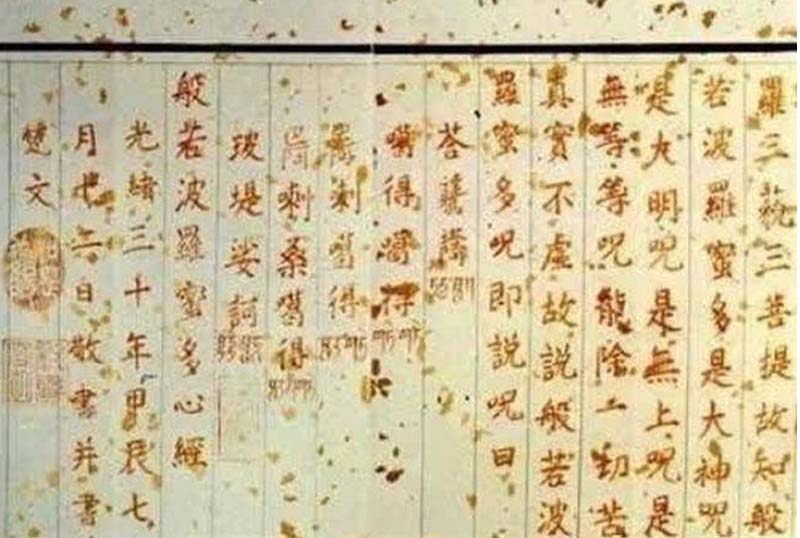 羅三藐三菩提故知般
若波羅蜜多是大神呪
是大明呪是無上呪是
無等等呪能除一切苦
真實不虛故說般若波
羅蜜多呪即說呪曰
荅
噶得噶得
剌噶得
剌桑噶得
玻堤娑訶
般若波羅蜜多心經
光緒三十年甲辰七
月廿二日敬書并書
文